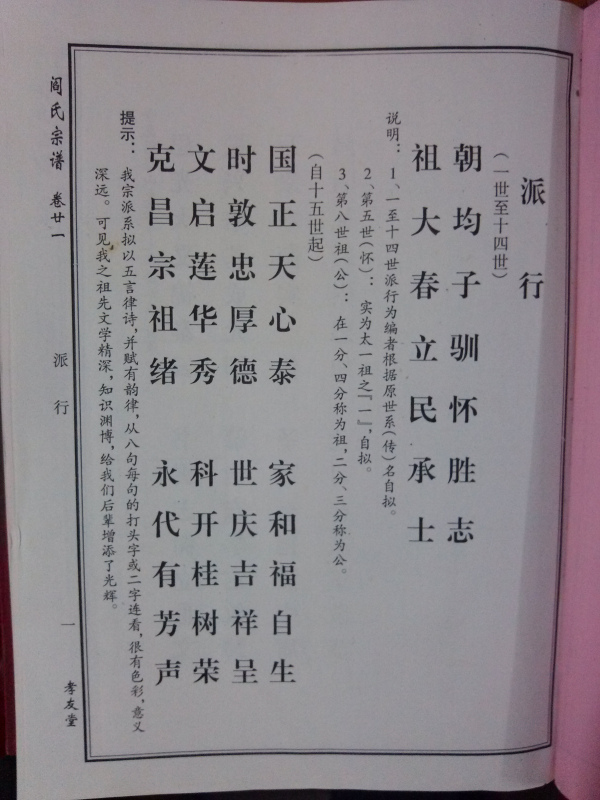 派行
（一世至十四世）
朝均子驯怀胜志
祖大春立民承士
说明：1、一至十四世派行为编者根据原世系（传）名自拟。
2、第五世（怀）：实为太一祖之『一』，自拟。
3、第八世祖（公）：在一分、四分称为祖，二分、三分称为公。
（自十五世起）
国正天心泰 家和福自生
时敦忠厚德 世庆吉祥呈
文启莲华秀 科开桂树荣
克昌宗祖绪 永代有芳声
提示：我宗派系拟以五言律诗，并赋有韵律，从八句每句的打头字或二字连看，很有色彩，意义
深远。可见我之祖先文学精深，知识渊博，给我们后辈增添了光辉。
阎氏宗谱 卷廿一
派行
一
孝友堂